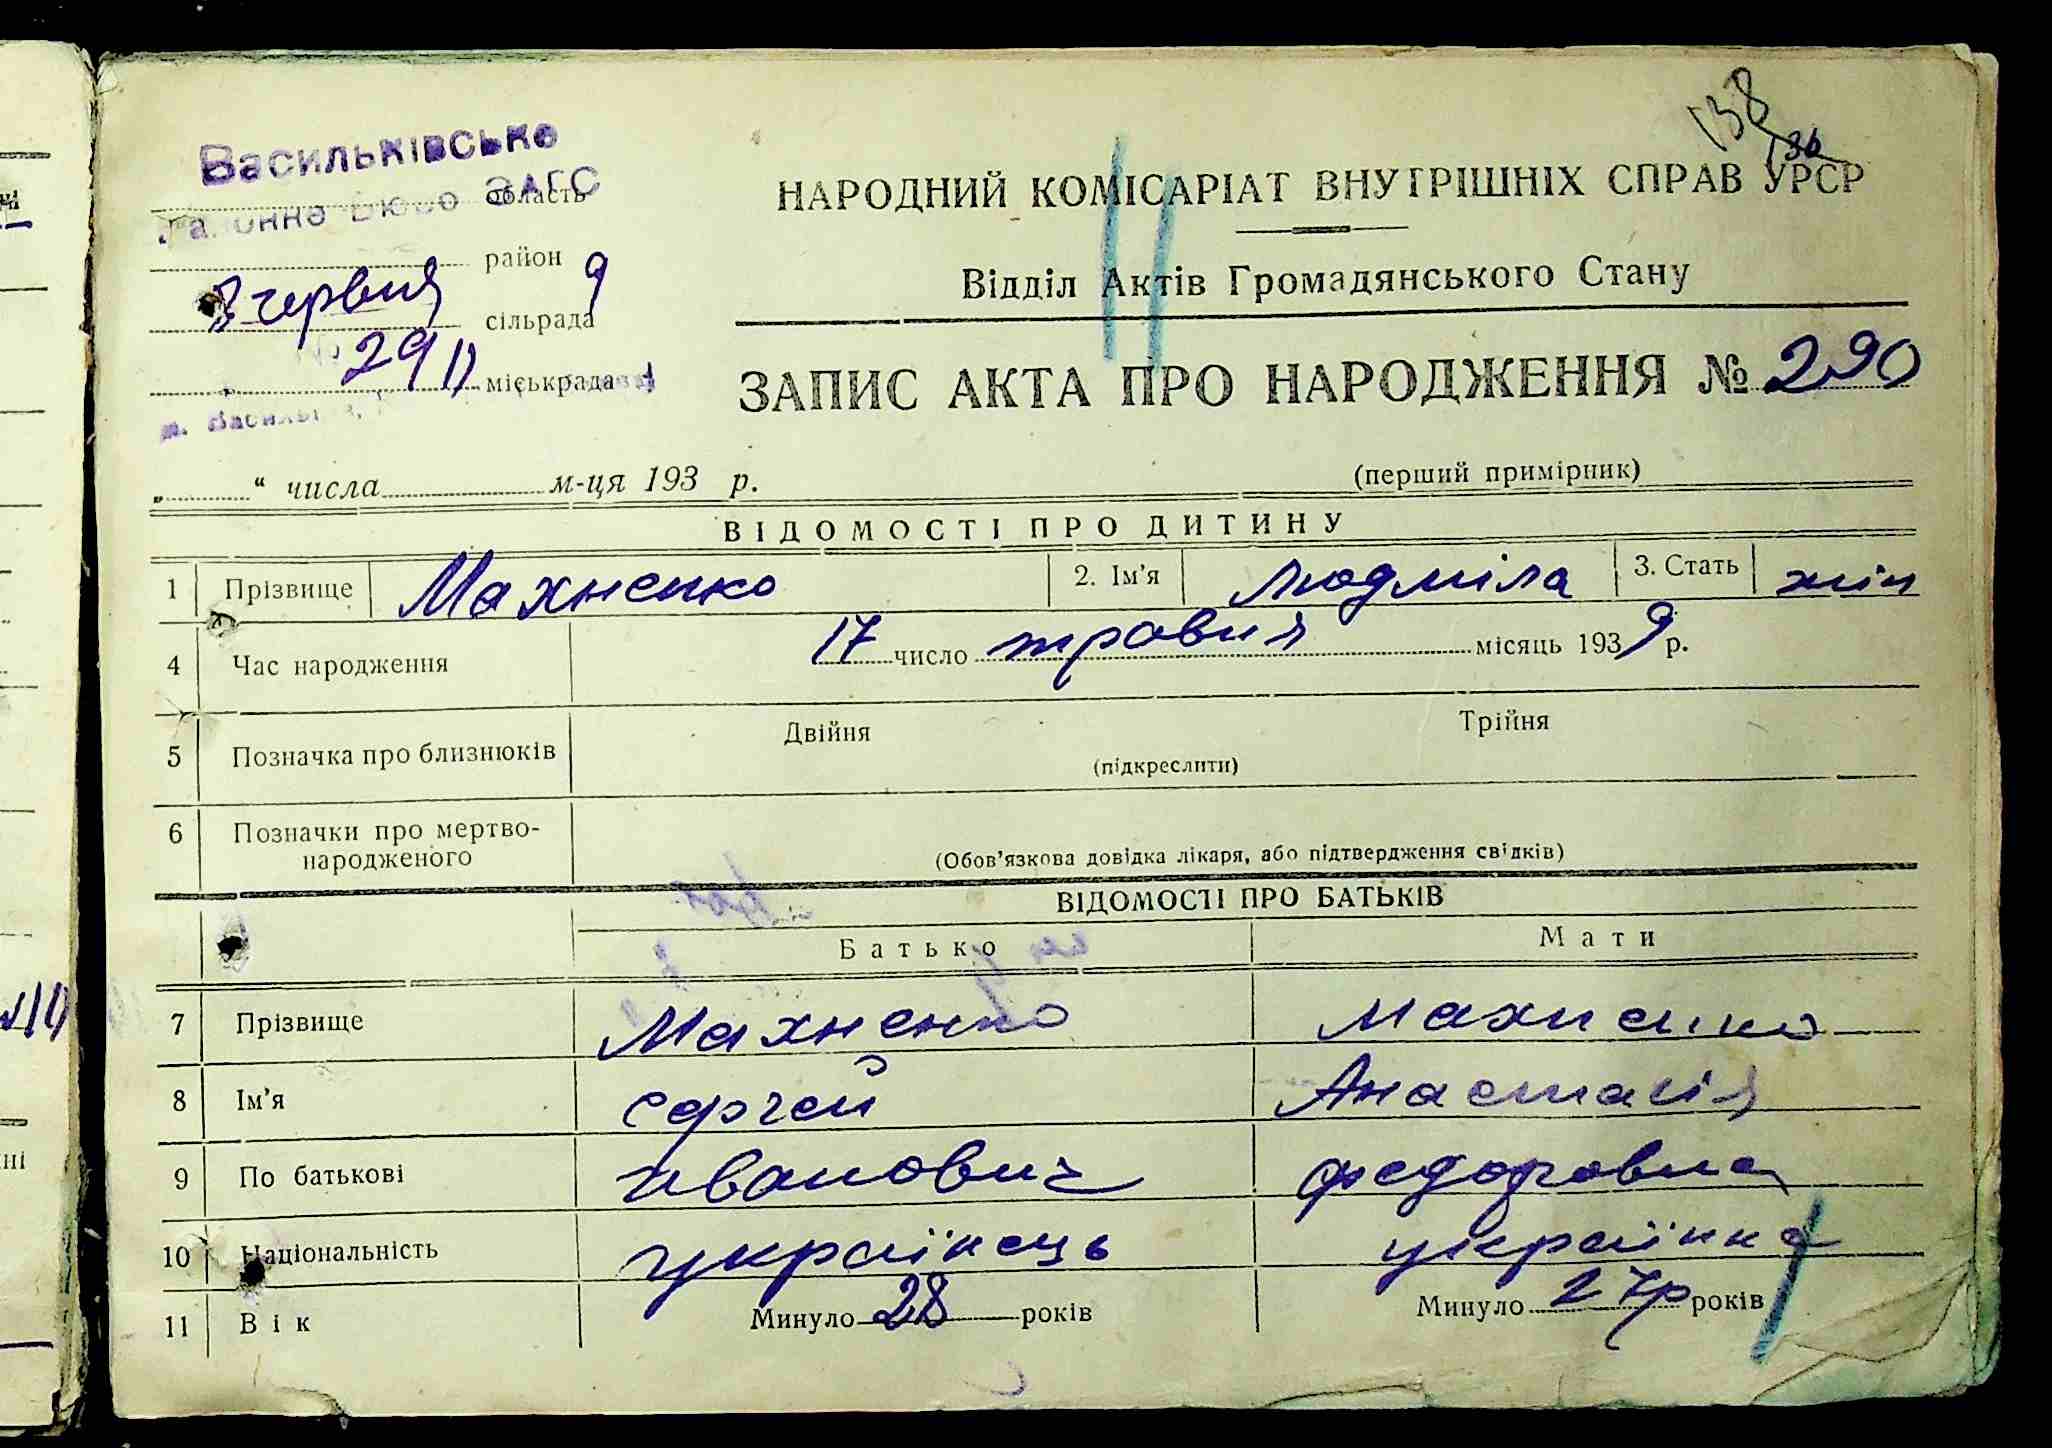 138
136
Васильківське
районне Бюро ЗАГС
область
район
3 червня 9
сільрада
29 міськрада
м. Васильків,
НАРОДНИЙ КОМІСАРІАТ ВНУТРІШНІХ СПРАВ УРСР
Відділ Актів Громадянського Стану
ЗАПИС АКТА ПРО НАРОДЖЕННЯ № 290
„ “ числа м-ця 193 р.
(перший примірник)
ВІДОМОСТІ ПРО ДИТИНУ
1 Прізвище Махненко 2. Ім'я Людміла 3. Стать жін
4 Час народження 17 число травня місяць 1939 р.
5 Позначка про близнюків Двійня Трійня
(підкреслити)
6 Позначки про мертво-
народженого (Обов'язкова довідка лікаря, або підтвердження свідків)
ВІДОМОСТІ ПРО БАТЬКІВ
Батько Мати
7 Прізвище Махненко Махненко
8 Ім'я Сергей Анастасія
9 По батькові Иванович Федоровна
10 Національність українець українка
11 Вік Минуло 28 років Минуло 27р років